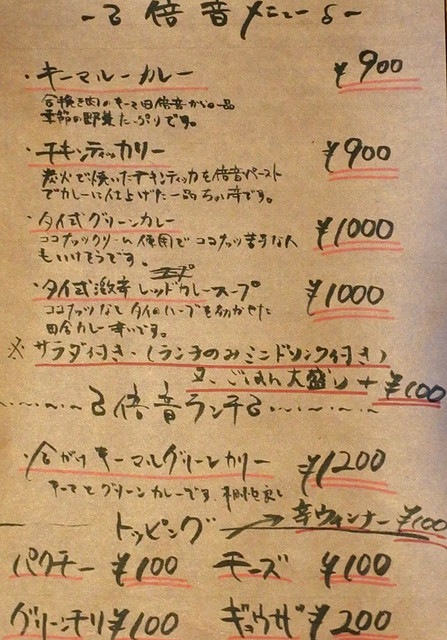 倍音メニュー
・キーマルーカレー ¥900
合挽き肉のキーマ 倍音からの一品
季節の野菜たっぷりです。
・チキンティッカリー ¥900
炭火で焼いたチキンティッカを倍音ペースト
でカレーに仕上げた一品
・タイ式グリーンカレー ¥1000
ココナッツクリーム使用でココナッツ苦手な人
もいけそうです。
・タイ式激辛レッドカレースープ ¥1000
ココナッツなしタイのハーブを効かせた
田舎カレー 辛いです。
※サラダ付き・(ランチのみミニドリンク付き)
又、ごはん大盛り+¥100
倍音ランチ
・合がけキーマルグリーンカリー ¥1200
キーマとグリーンカレーです。相性良し
トッピング → 辛ウィンナー ¥100
パクチー ¥100 チーズ ¥100
グリーンチリ ¥100 ギョウザ ¥200